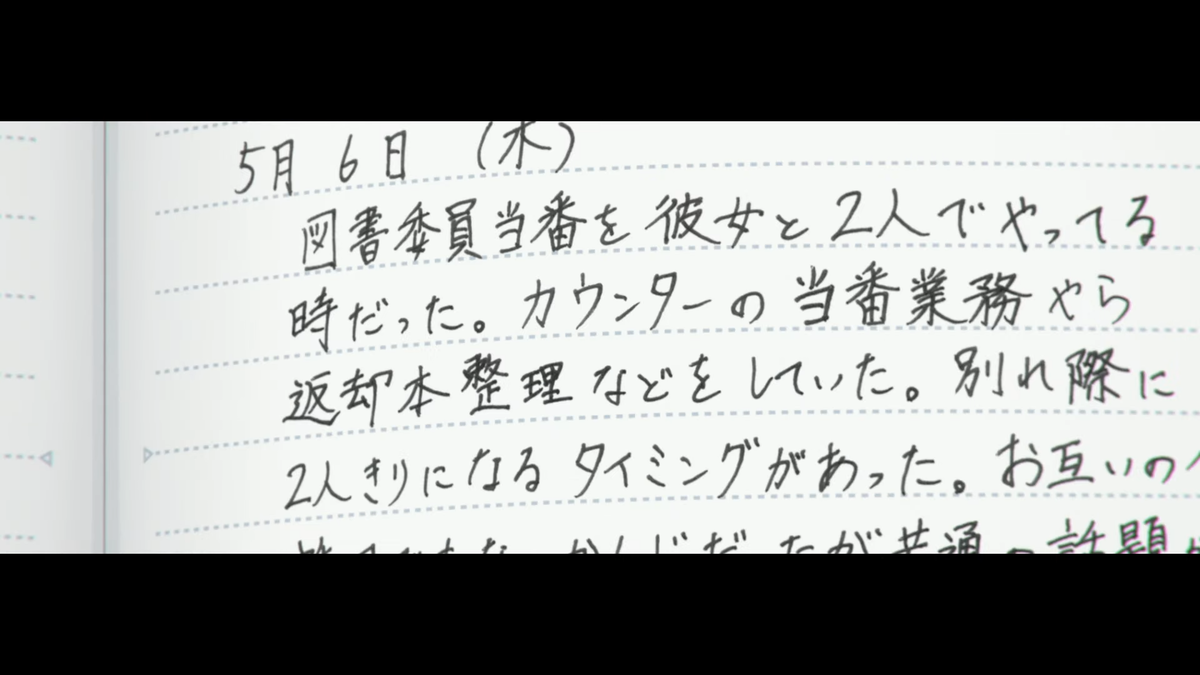 5月 6日 (木)
図書委員当番を彼女と2人でやってる
時だった。カウンターの当番業務やら
返却本整理などをしていた。別れ際に
2人きりになるタイミングがあった。お互いの
かんじだったが共通の話題が